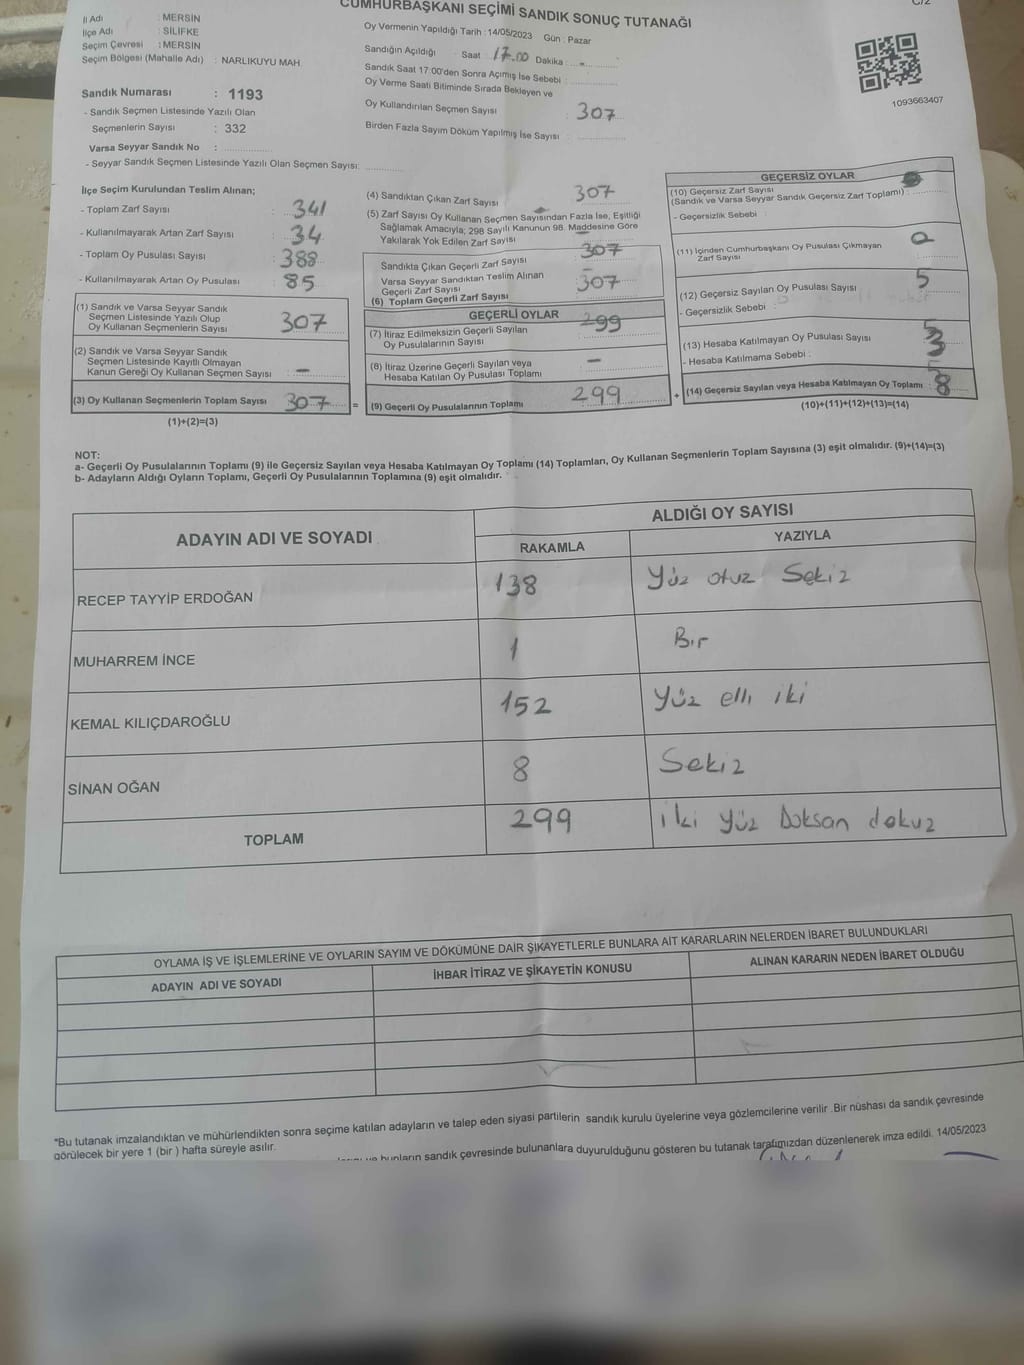 C/2
CUMHURBAŞKANI SEÇİMİ SANDIK SONUÇ TUTANAĞI
İl Adı : MERSİN
İlçe Adı : SİLİFKE
Seçim Çevresi : MERSİN
Seçim Bölgesi (Mahalle Adı) : NARLIKUYU MAH.
Sandık Numarası : 1193
- Sandık Seçmen Listesinde Yazılı Olan
Seçmenlerin Sayısı : 332
Varsa Seyyar Sandık No :
- Seyyar Sandık Seçmen Listesinde Yazılı Olan Seçmen Sayısı:
Oy Vermenin Yapıldığı Tarih : 14/05/2023 Gün : Pazar
Sandığın Açıldığı Saat 17.00 Dakika
Sandık Saat 17:00'den Sonra Açımış İse Sebebi :
Oy Verme Saati Bitiminde Sırada Bekleyen ve
Oy Kullandırılan Seçmen Sayısı : 307
Birden Fazla Sayım Döküm Yapılmış İse Sayısı :
1093663407
İlçe Seçim Kurulundan Teslim Alınan;
- Toplam Zarf Sayısı : 341
- Kullanılmayarak Artan Zarf Sayısı : 34
- Toplam Oy Pusulası Sayısı : 388
- Kullanılmayarak Artan Oy Pusulası : 85
(1) Sandık ve Varsa Seyyar Sandık
Seçmen Listesinde Yazılı Olup
Oy Kullanan Seçmenlerin Sayısı : 307
(2) Sandık ve Varsa Seyyar Sandık
Seçmen Listesinde Kayıtlı Olmayan
Kanun Gereği Oy Kullanan Seçmen Sayısı : -
(3) Oy Kullanan Seçmenlerin Toplam Sayısı 307 =
(1)+(2)=(3)
(4) Sandıktan Çıkan Zarf Sayısı 307
(5) Zarf Sayısı Oy Kullanan Seçmen Sayısından Fazla İse, Eşitliği
Sağlamak Amacıyla; 298 Sayılı Kanunun 98. Maddesine Göre
Yakılarak Yok Edilen Zarf Sayısı : -
Sandıkta Çıkan Geçerli Zarf Sayısı : 307
Varsa Seyyar Sandıktan Teslim Alınan
Geçerli Zarf Sayısı : -
(6) Toplam Geçerli Zarf Sayısı 307
GEÇERLİ OYLAR
(7) İtiraz Edilmeksizin Geçerli Sayılan
Oy Pusulalarının Sayısı 299
(8) İtiraz Üzerine Geçerli Sayılan veya
Hesaba Katılan Oy Pusulası Toplamı -
(9) Geçerli Oy Pusulalarının Toplamı 299 +
GEÇERSİZ OYLAR
(10) Geçersiz Zarf Sayısı
(Sandık ve Varsa Seyyar Sandık Geçersiz Zarf Toplamı) :
- Geçersizlik Sebebi :
(11) İçinden Cumhurbaşkanı Oy Pusulası Çıkmayan
Zarf Sayısı :
(12) Geçersiz Sayılan Oy Pusulası Sayısı : 5
- Geçersizlik Sebebi :
(13) Hesaba Katılmayan Oy Pusulası Sayısı : 3
- Hesaba Katılmama Sebebi :
(14) Geçersiz Sayılan veya Hesaba Katılmayan Oy Toplamı : 8
(10)+(11)+(12)+(13)=(14)
NOT:
a- Geçerli Oy Pusulalarının Toplamı (9) ile Geçersiz Sayılan veya Hesaba Katılmayan Oy Toplamı (14) Toplamları, Oy Kullanan Seçmenlerin Toplam Sayısına (3) eşit olmalıdır. (9)+(14)=(3)
b- Adayların Aldığı Oyların Toplamı, Geçerli Oy Pusulalarının Toplamına (9) eşit olmalıdır.
ADAYIN ADI VE SOYADI ALDIĞI OY SAYISI
RAKAMLA YAZIYLA
RECEP TAYYİP ERDOĞAN 138 Yüz otuz Sekiz
MUHARREM İNCE 1 Bir
KEMAL KILIÇDAROĞLU 152 Yüz elli iki
SİNAN OĞAN 8 Sekiz
TOPLAM 299 iki yüz Doksan dokuz
OYLAMA İŞ VE İŞLEMLERİNE VE OYLARIN SAYIM VE DÖKÜMÜNE DAİR ŞİKAYETLERLE BUNLARA AİT KARARLARIN NELERDEN İBARET BULUNDUKLARI
ADAYIN ADI VE SOYADI İHBAR İTİRAZ VE ŞİKAYETİN KONUSU ALINAN KARARIN NEDEN İBARET OLDUĞU
*Bu tutanak imzalandıktan ve mühürlendikten sonra seçime katılan adayların ve talep eden siyasi partilerin sandık kurulu üyelerine veya gözlemcilerine verilir .Bir nüshası da sandık çevresinde
görülecek bir yere 1 (bir ) hafta süreyle asılır.
bunların sandık çevresinde bulunanlara duyurulduğunu gösteren bu tutanak tarafımızdan düzenlenerek imza edildi. 14/05/2023